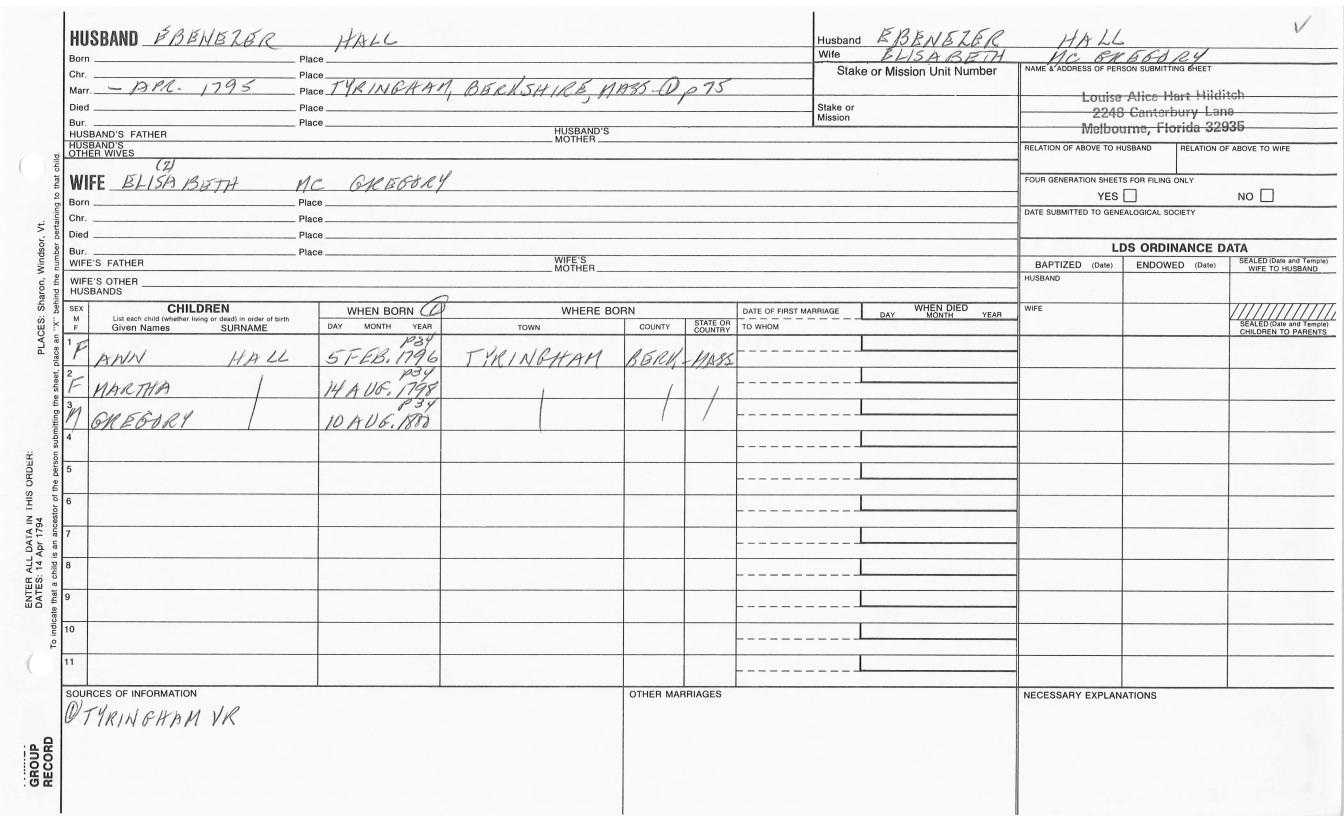 HUSBAND EBENEZER HALL
Born Place
Chr. Place
Marr. – APR. 1795 Place TYRINGHAM, BERKSHIRE, MASS ① p 75
Died Place
Bur. Place
HUSBAND'S FATHER HUSBAND'S MOTHER
HUSBAND'S OTHER WIVES
(2)
WIFE ELISABETH MC GREGORY
Born Place
Chr. Place
Died Place
Bur. Place
WIFE'S FATHER WIFE'S MOTHER
WIFE'S OTHER HUSBANDS
Husband EBENEZER HALL
Wife ELISABETH MC GREGORY
Stake or Mission Unit Number
Stake or Mission
NAME & ADDRESS OF PERSON SUBMITTING SHEET
Louise Alice Hart Hilditch
2248 Canterbury Lane
Melbourne, Florida 32935
RELATION OF ABOVE TO HUSBAND RELATION OF ABOVE TO WIFE
FOUR GENERATION SHEETS FOR FILING ONLY
YES NO
DATE SUBMITTED TO GENEALOGICAL SOCIETY
LDS ORDINANCE DATA
BAPTIZED (Date) ENDOWED (Date) SEALED (Date and Temple) WIFE TO HUSBAND
HUSBAND
WIFE
SEALED (Date and Temple) CHILDREN TO PARENTS
SEX M F
CHILDREN
List each child (whether living or dead) in order of birth
Given Names SURNAME
WHEN BORN ①
DAY MONTH YEAR
WHERE BORN
TOWN COUNTY STATE OR COUNTRY
DATE OF FIRST MARRIAGE
TO WHOM
WHEN DIED
DAY MONTH YEAR
p34
1 F ANN HALL 5 FEB. 1796 TYRINGHAM BERK. MASS
p34
2 F MARTHA 14 AUG. 1798
p34
3 M GREGORY 10 AUG. 1800
4
5
6
7
8
9
10
11
SOURCES OF INFORMATION
① TYRINGHAM VR
OTHER MARRIAGES
NECESSARY EXPLANATIONS
ENTER ALL DATA IN THIS ORDER:
DATES: 14 Apr 1794 PLACES: Sharon, Windsor, Vt.
To indicate that a child is an ancestor of the person submitting the sheet, place an "X" behind the number pertaining to that child
GROUP
RECORD